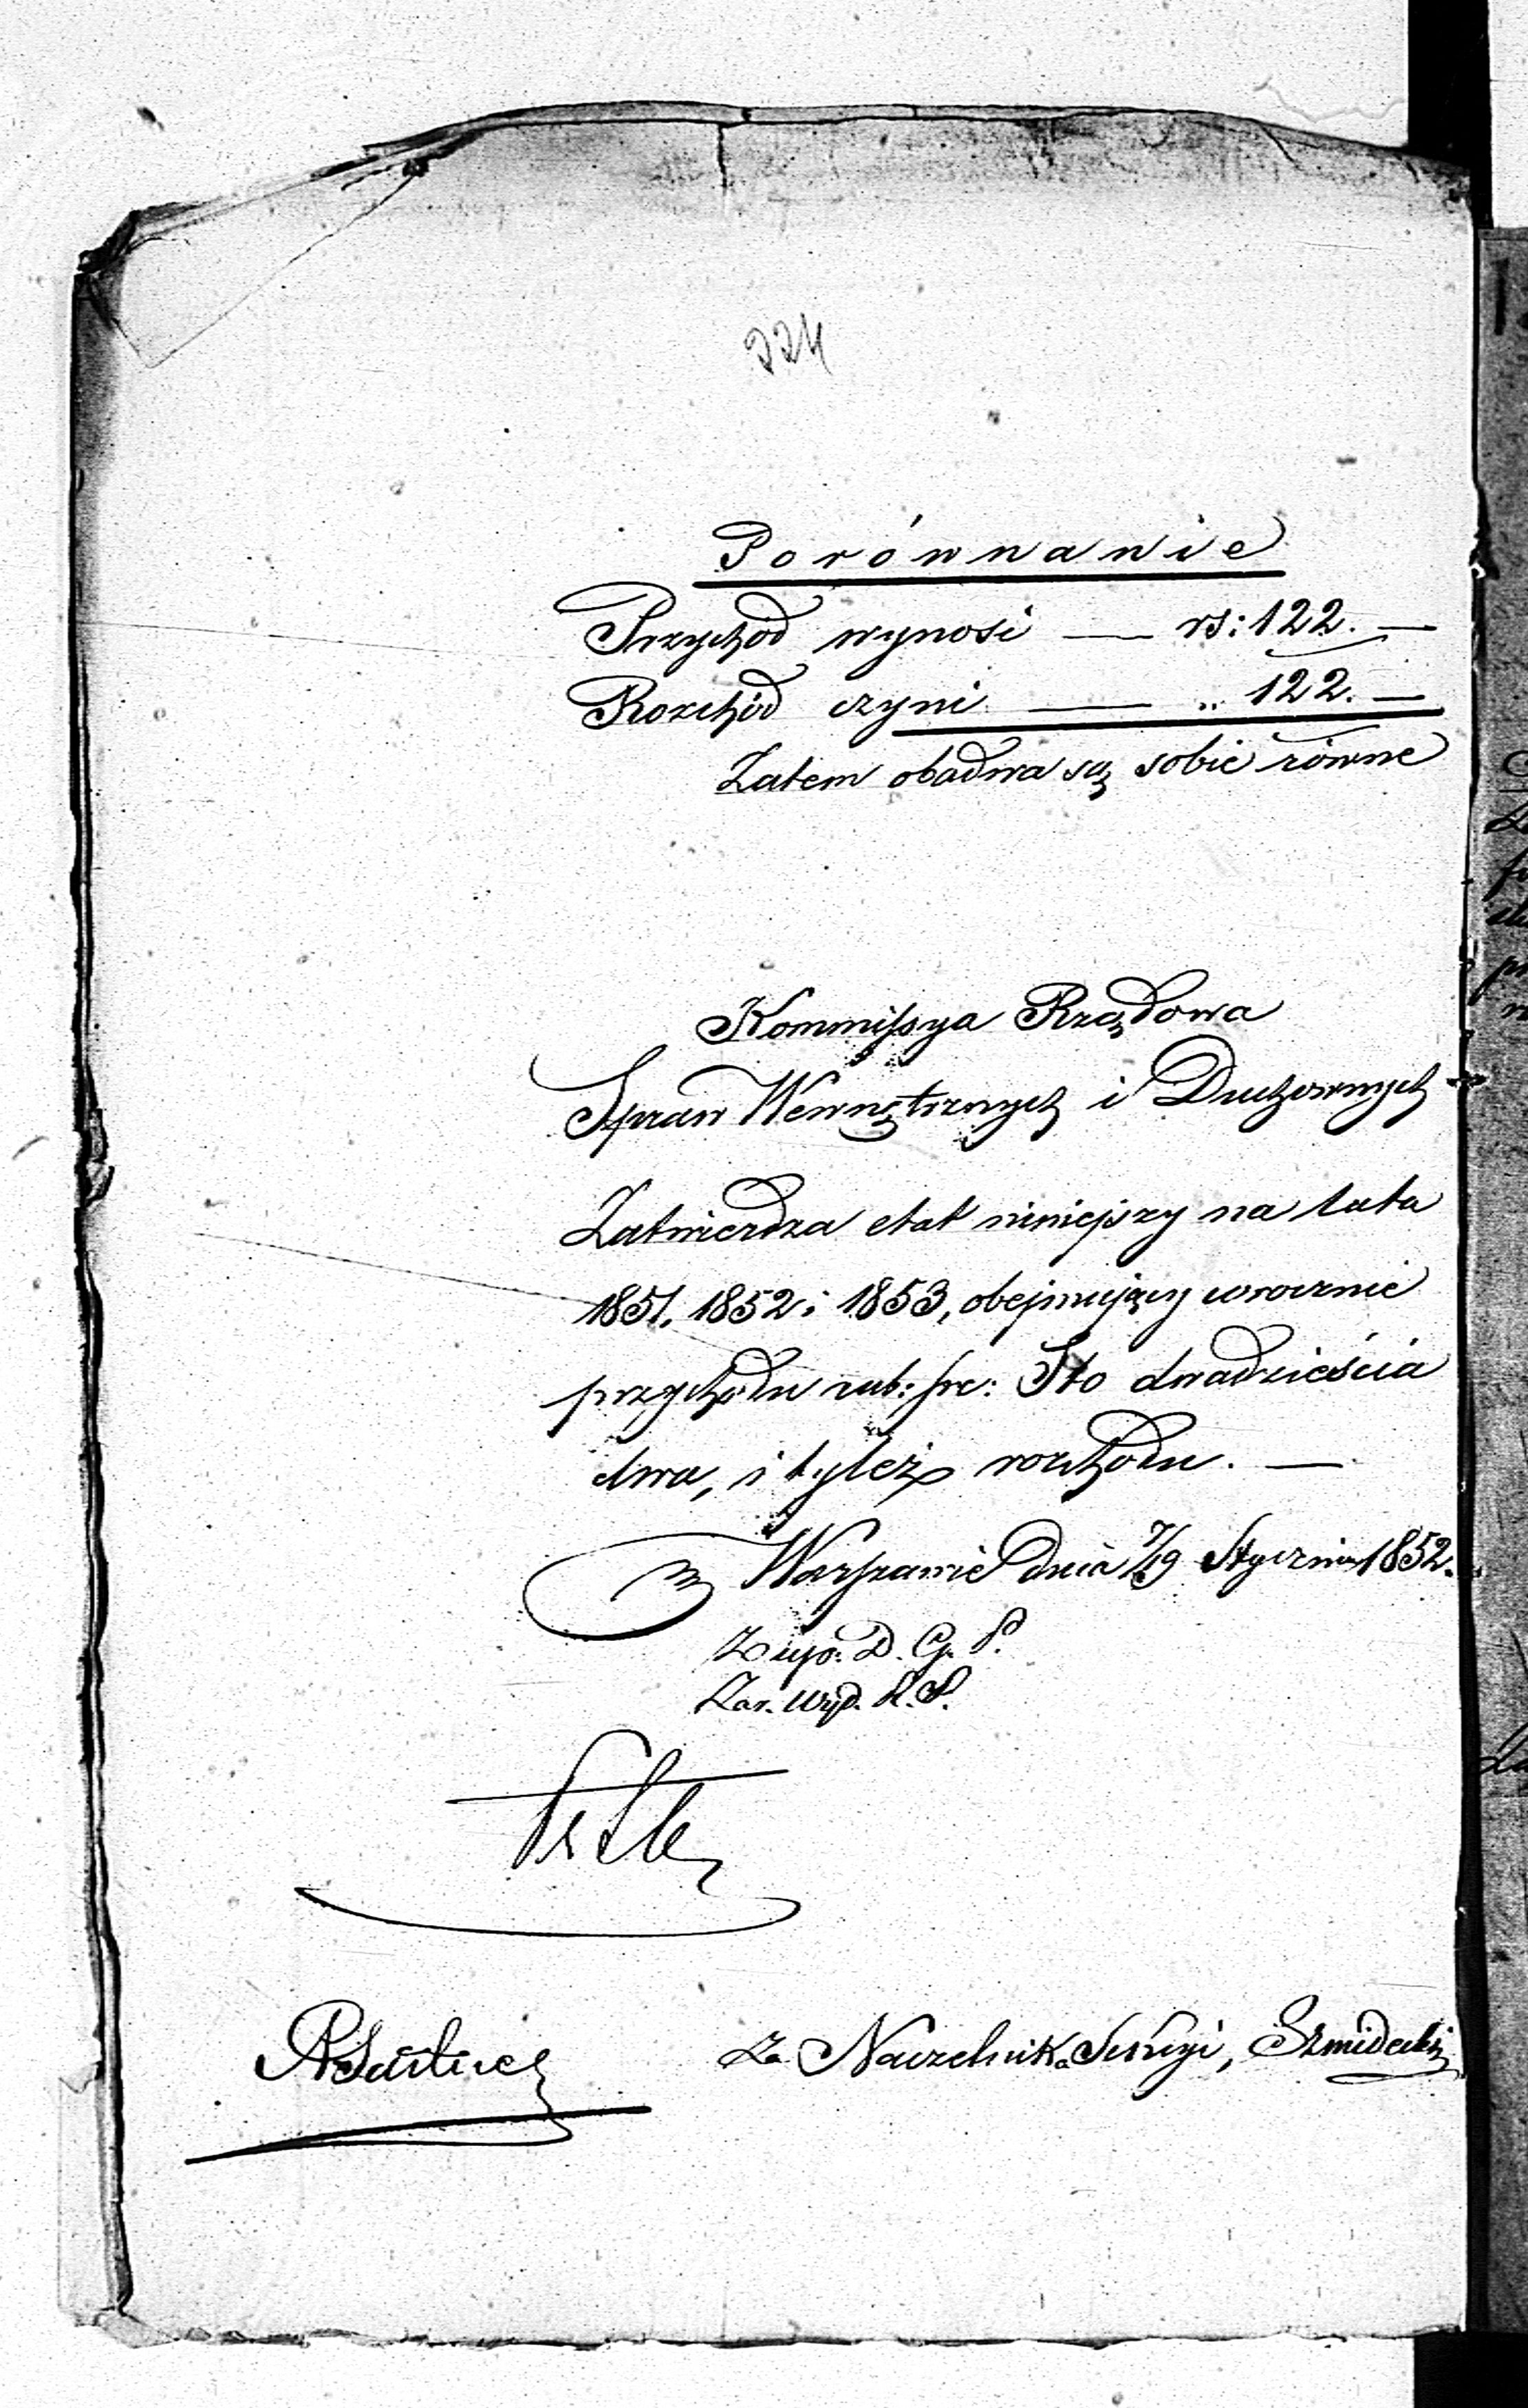 224
Porównanie
Przychód wynosi — rs: 122. —
Rozchód czyni — „ 122. —
Zatem obadwa są sobie równe
Kommissya Rządowa
Spraw Wewnętrznych i Duchownych
Zatwierdza etat niniejszy na lata
1851, 1852 i 1853, obejmujący corocznie
przychodu rub: sre: Sto dwadzieścia
dwa, i tyleż rozchodu. —
w Warszawie dnia 7/19 Stycznia 1852.
Z upo: D. G. P.
Za Naczelnika Sekcyi, Szmidecki